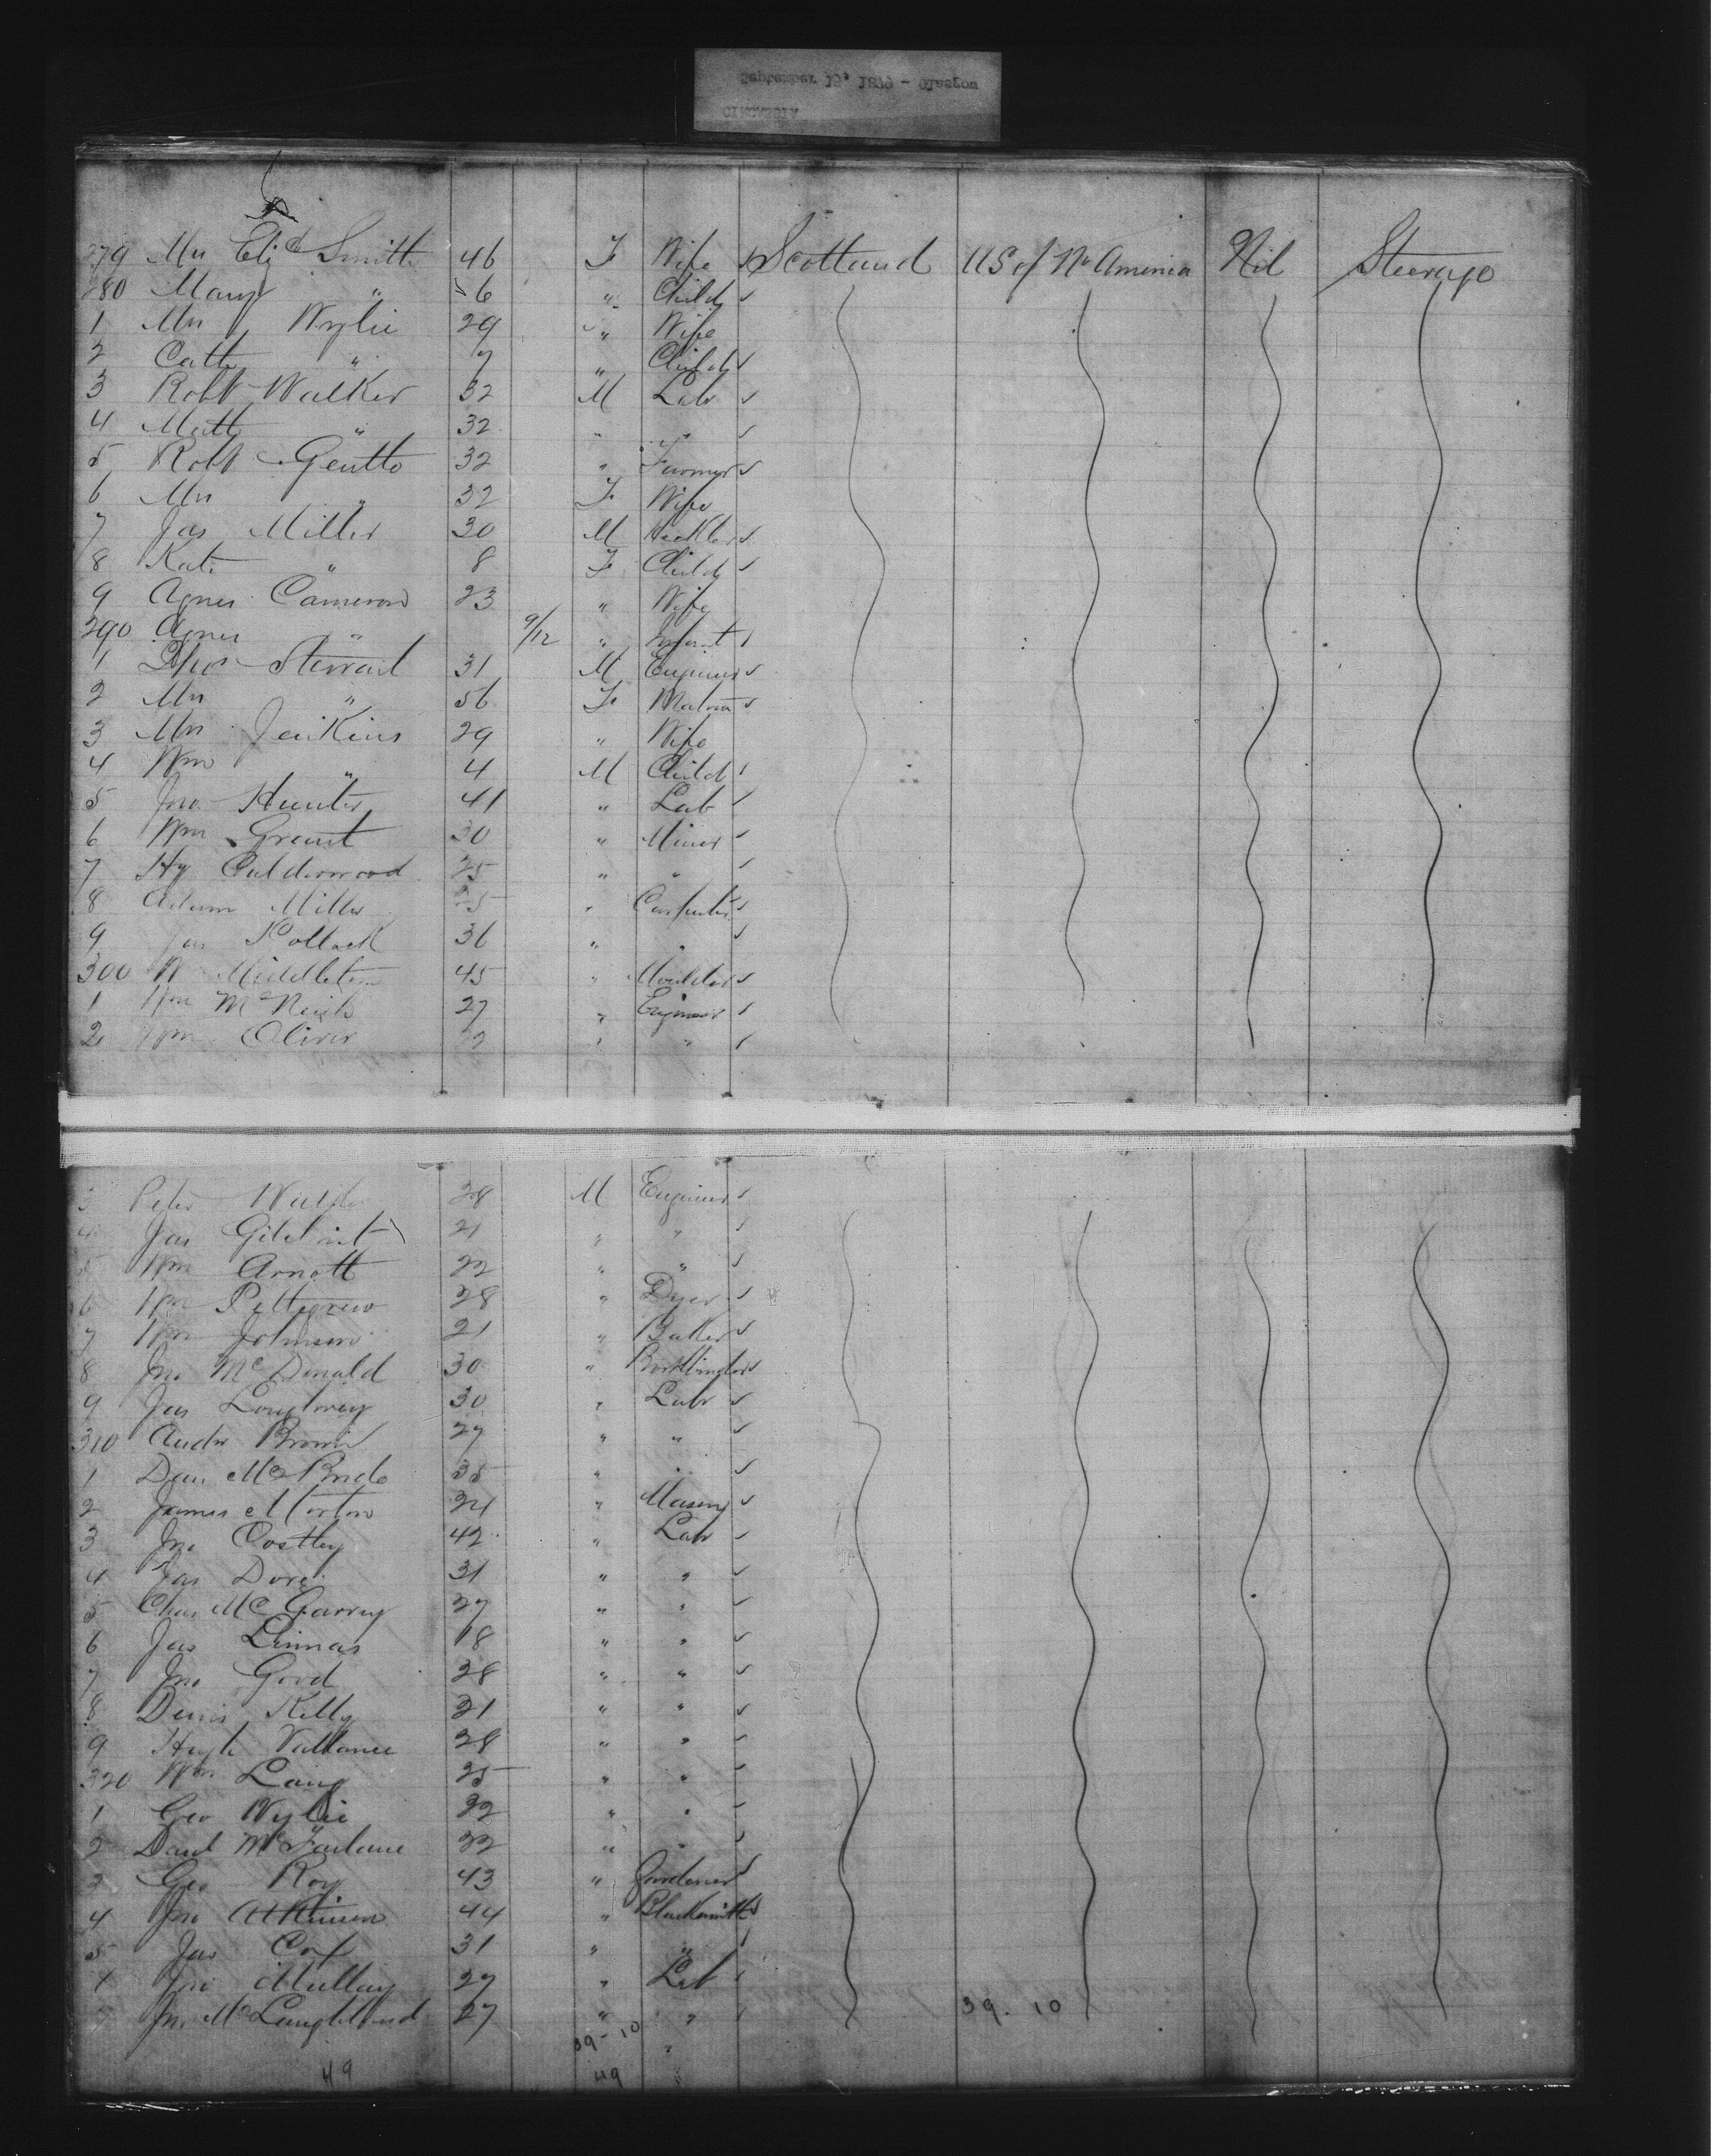 September 19, 1879 - Glasgow
CIRCASSIA
279 Mrs Eliz Smith 46 F Wife Scotland US of No America Nil Steerage
280 Mary " 6 " Child
1 Mrs Wylie 29 " Wife
2 Cath " 7 " Child
3 Robt Walker 32 M Lab
4 Matt " 32 " "
5 Robt 32 " Farmer
6 Mrs " 32 F Wife
7 Jas Miller 30 M
8 Kate " 8 F Child
9 Agnes Cameron 23 " Wife
290 Agnes " 9/12 " Infant
1 Thos Stewart 31 M Engineer
2 Mrs " 56 F Matron
3 Mrs Jenkins 29 " Wife
4 Wm " 4 M Child
5 Jno Hunter 41 " Lab
6 Wm Grant 30 " Miner
7 Hy Calderwood 25 " "
8 Adam Miller 25 " Carpenter
9 Jas Pollock 36 " "
300 W Middleton 45 " Moulder
1 Wm McNeish 27 " Engineer
2 Wm Oliver " "
3 Peter 28 M Engineer
4 Jas Gilchrist 21 " "
5 Wm Arnott 22 " "
6 Wm Pettigrew 28 " Dyer
7 Wm Johnson 21 " Baker
8 Jno McDonald 30 " Bookbinder
9 Jas Loughrey 30 " Lab
310 Andw Brown 27 " "
1 Dan McBride 35 " "
2 James Morton 24 " Mason
3 Jno Costley 42 " Lab
4 Jas 31 " "
5 Chas McGarvey 27 " "
6 Jas 18 " "
7 Jno Good 28 " "
8 Denis Kelly 21 " "
9 Hugh Vallance 28 " "
320 Wm Laing 25 " "
1 Geo Wylie 32 " "
2 Danl McFarlane 32 " "
3 Geo Roy 43 " Gardener
4 Jno Atkinson 44 " Blacksmith
5 Jas Cox 31 " "
Jno Mullay 27 " Lab
7 Jno McLaughland 27 " " 39. 10
39-10 "
49 49 "